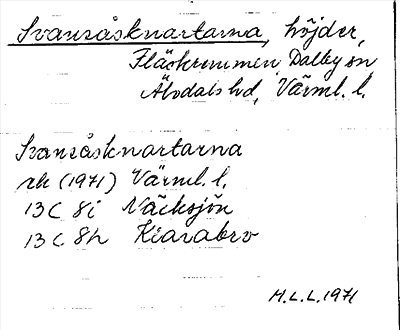 Svansåsknartarna, höjder,
Fläskremmen, Dalby sn
Älvdals hd, Värml. l.
Svansåsknartarna
rk (1971) Värml. l.
13C 8i Näcksjön
13C 8h
H.L.L. 1971